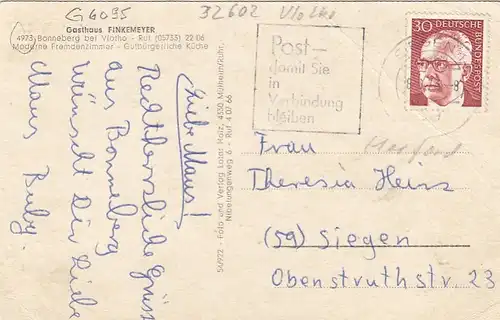 G 6095
32602 Vlotho
Gasthaus FINKEMEYER
4973 Bonneberg bei Vlotho - Ruf (05733) 22 06
Moderne Fremdenzimmer - Gutbürgerliche Küche
Liebe Maus!
Rechtherzliche Grüs
aus Bonneberg
wünscht Dir liebe
Maus Buby.
56922 - Foto und Verlag Lotar Holz, 4330 Mülheim/Ruhr,
Nibelungenweg 6 - Ruf 4 07 66
Post-
damit Sie
in
Verbindung
bleiben
30 DEUTSCHE
BUNDESPOST
Frau
Theresia Heinz
(59) Siegen
Obenstruthstr. 23